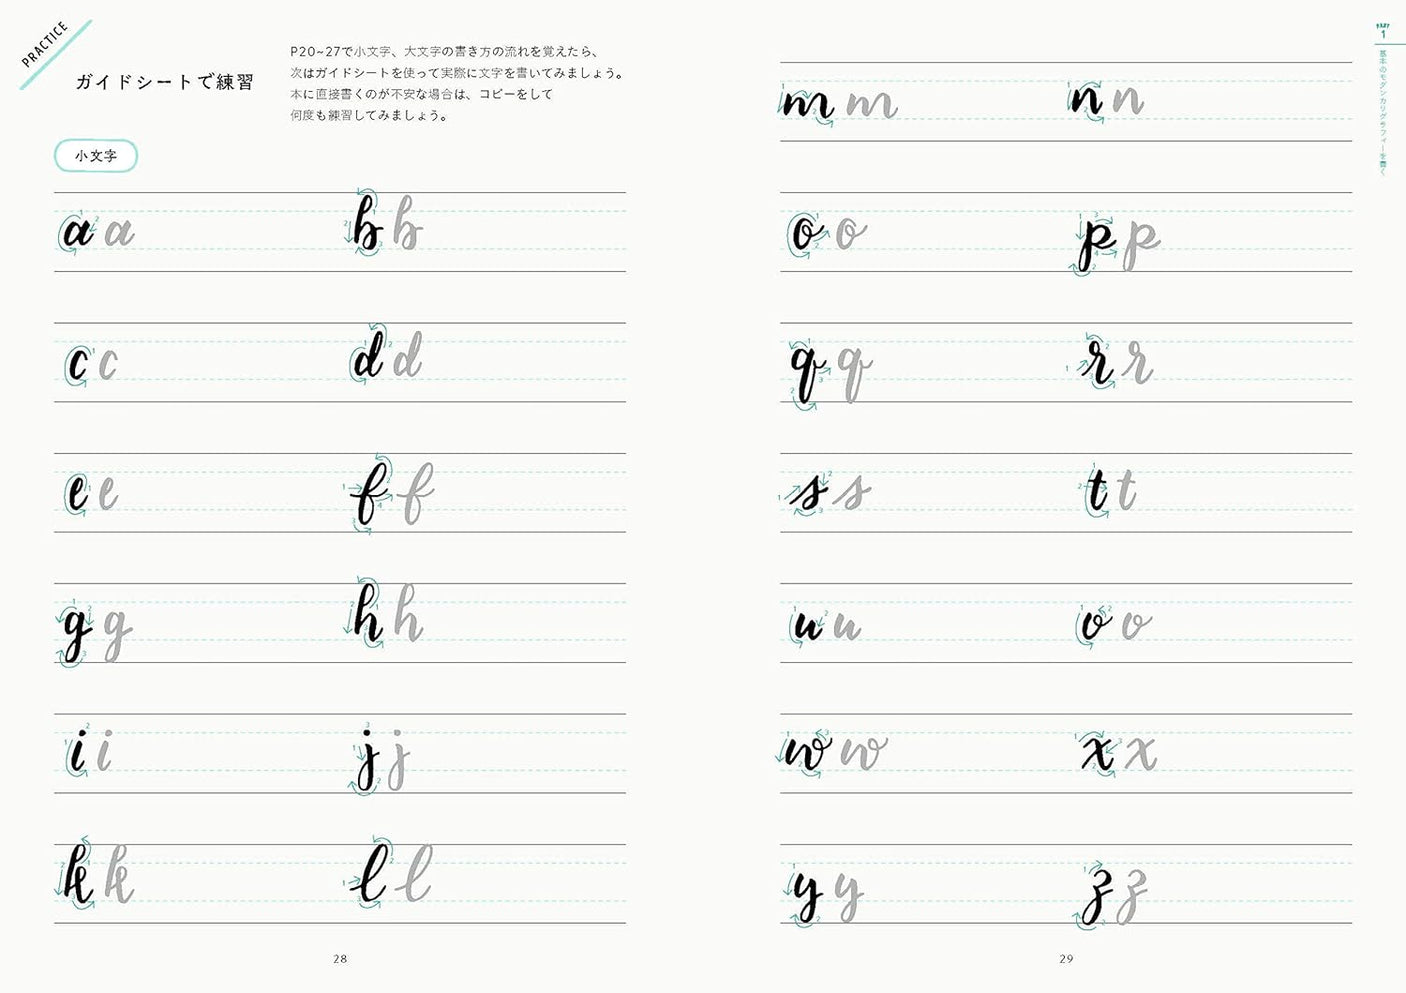 PRACTICE
ガイドシートで練習
P20~27で小文字、大文字の書き方の流れを覚えたら、
次はガイドシートを使って実際に文字を書いてみましょう。
本に直接書くのが不安な場合は、コピーをして
何度も練習してみましょう。
小文字
a a b b
c c d d
e e f f
g g h h
i i j j
k k l l
28
PART
1
基本のモダンカリグラフィーを書く
m m n n
o o p p
q q r r
s s t t
u u v v
w w x x
y y z z
29